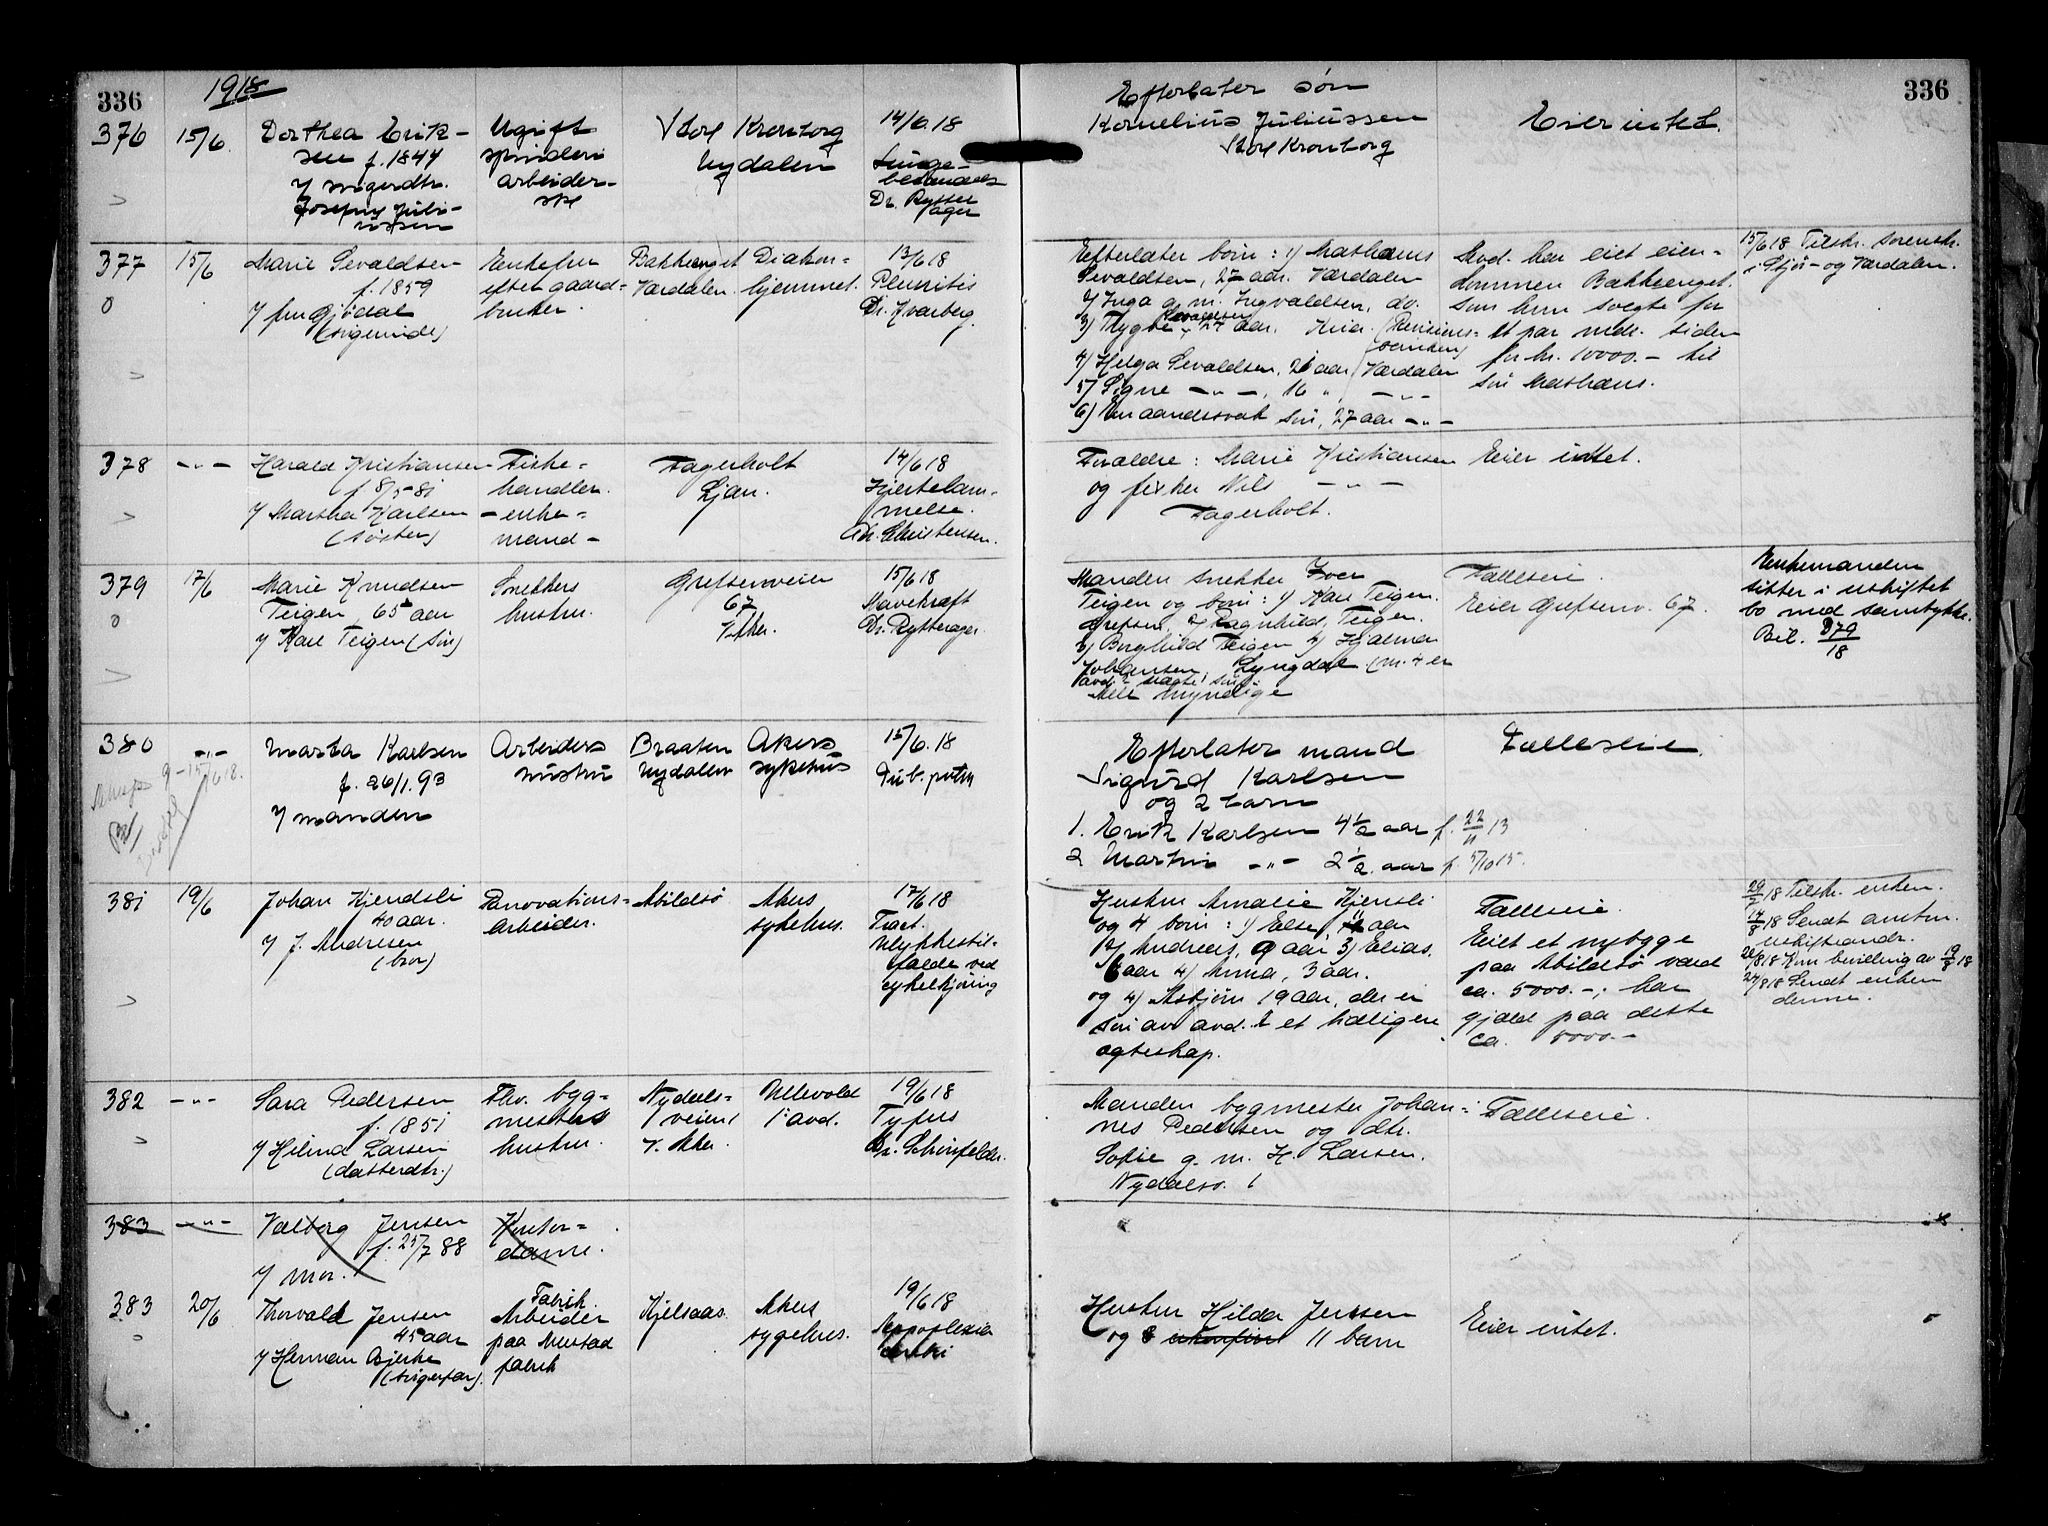 336
1918
336
376
15/6
Dorthea Erik-
sen f. 1847
v/ svigerdtr.
Josefine Juli-
ussen
Ugift
spinderi
arbeider-
ske
Store Kronborg
Nydalen
14/6.18
Lunge-
betændels
Dr. Rytter
ager
Efterlater søn
Kornelius Juliussen
Store Kronborg
Eier intet.
377
15/6
Marie Sevaldsen
f. 1859
v/ fru Gjødal
(svigerinde)
Enkefru
efter gaard-
bruker.
Bakkenget
Værdalen.
Diakon-
hjemmet.
13/6 18
Pleuritis
Dr. Kvarberg.
Efterlater børn: 1) Mathæus
Sevaldsen, 27 aar. Værdalen
2) Inga g. m. Ingvaldsen, do.
3) Trygve Sevaldsen, 24 aar, Kria. (Revisions-
4) Helga Sevaldsen, 21 aar, Værdalen
5) Signe -"-, 16 ", -"-
6) En aandssvak søn, 27 aar -"-
Avd. har eiet eien-
dommen Bakkeenget.
som hun solgte for
et par mdr. siden
for kr. 10000.- til
søn Mathæus.
15/6 18 Tilskr. sorenskr.
i Stjør- og Værdalen.
378
-"-
Harald Kristiansen
f. 8/5-81
v/ Martha Karlsen
(søster)
Fiske-
handler.
- enke-
mand -
Fagerholt
Ljan.
14/6 18
Hjertelam-
melse.
Dr. Christensen.
Foraldre: Marie Kristiansen
og fisker Nils -"-
Fagerholt.
Eier intet.
379
17/6
Marie Knudsen
Teigen, 65 aar
v/ Karl Teigen (søn)
Snekkers
hustru.
Grefsenveien
67
V. Aker.
15/6 18
Mavekræft
Dr. Rytterager.
Manden snekker Iver
Teigen og børn: 1) Karl Teigen.
Grefsen, 2) Ragnhild Teigen.
3) Borghild Teigen 4) Hjalmar
Johansen, Lyngdal (nr. 4 er
avd. uægte søn)
Alle myndige
Fælleseie.
Eier Grefsenv. 67.
Enkemanden
sitter i uskiftet
bo med samtykke.
Bil. 379/18
380
-"-
Marta Karlsen
f. 26/1.93
v/ manden
Arbeiders
hustru
Braaten
Nydalen
Akers
sykehus
15/6.18
Tub. pulm
Efterlater mand
Sigurd Karlsen
og 2 barn
1. Erik Karlsen 4 1/2 aar f. 22/11 13
2 Martin -"- 2 1/2 aar f. 5/10 15.
Fælleseie.
381
19/6
Johan Kjendsli
40 aar.
v/ J. Andresen
(bror)
Renovations-
arbeider.
Abildsø
Akers
sykehus.
17/6 18
Fract.
Ulykkestil-
fælde ved
cykelkjøring
Hustru Amalie Kjensli
og 4 børn: 1) Else, 11 aar
2) Andreas, 9 aar 3) Elias,
6 aar 4) Anna, 3 aar.
og 4) Asbjørn 19 aar, der er
søn av avd. i et tidligere
egteskap.
Fælleseie.
Eiet et nybygge
paa Abildsø værd
ca. 5000.-; har
gjæld paa dette
ca. 5000.-
29/7 18 Tilskr. enken.
14/8 18 Sendt amtm.
uskifteandr.
22/8 18 Kom bevilling av 19/8 18
27/8 18 Sendt enken
denne.
382
-"-
Sara Pedersen
f. 1851
v/ Hilma Larsen
(datterdtr.)
Fhv. byg-
mesters
hustru.
Nydals-
veien 1
V. Aker.
Ullevold
1 avd.
19/6 18
Tyfus
Dr. Schinfelder.
Manden bygmester Johan-
nes Pedersen og dtr.
Sofie g. m. H. Larsen.
Nydalsv. 1
Fælleseie.
383
-"-
Valborg Jensen
f. 25/7 88
v/ mor.
Kontor-
dame.
383
20/6
Thorvald Jensen
45 aar
v/ Herman Bjerke
(svigerfar).
Fabrik.
Arbeider
paa Mustad
fabrik
Kjelsaas.
Akers
sygehus.
19/6 18
Appoplexia
cerebri
Hustru Hilda Jenssen
og 8 ukonfirm 11 barn
Eier intet.